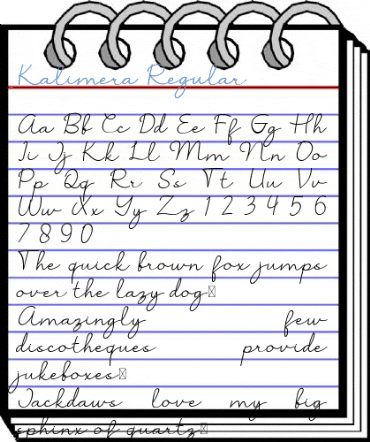 Kalimera Regular
Aa Bb Cc Dd Ee Ff Gg Hh
Ii Jj Kk Ll Mm Nn Oo
Pp Qq Rr Ss Tt Uu Vv
Ww Xx Yy Zz 1 2 3 4 5 6
7 8 9 0
The quick brown fox jumps
over the lazy dog
Amazingly few
discotheques provide
jukeboxes
Jackdaws love my big
sphinx of quartz